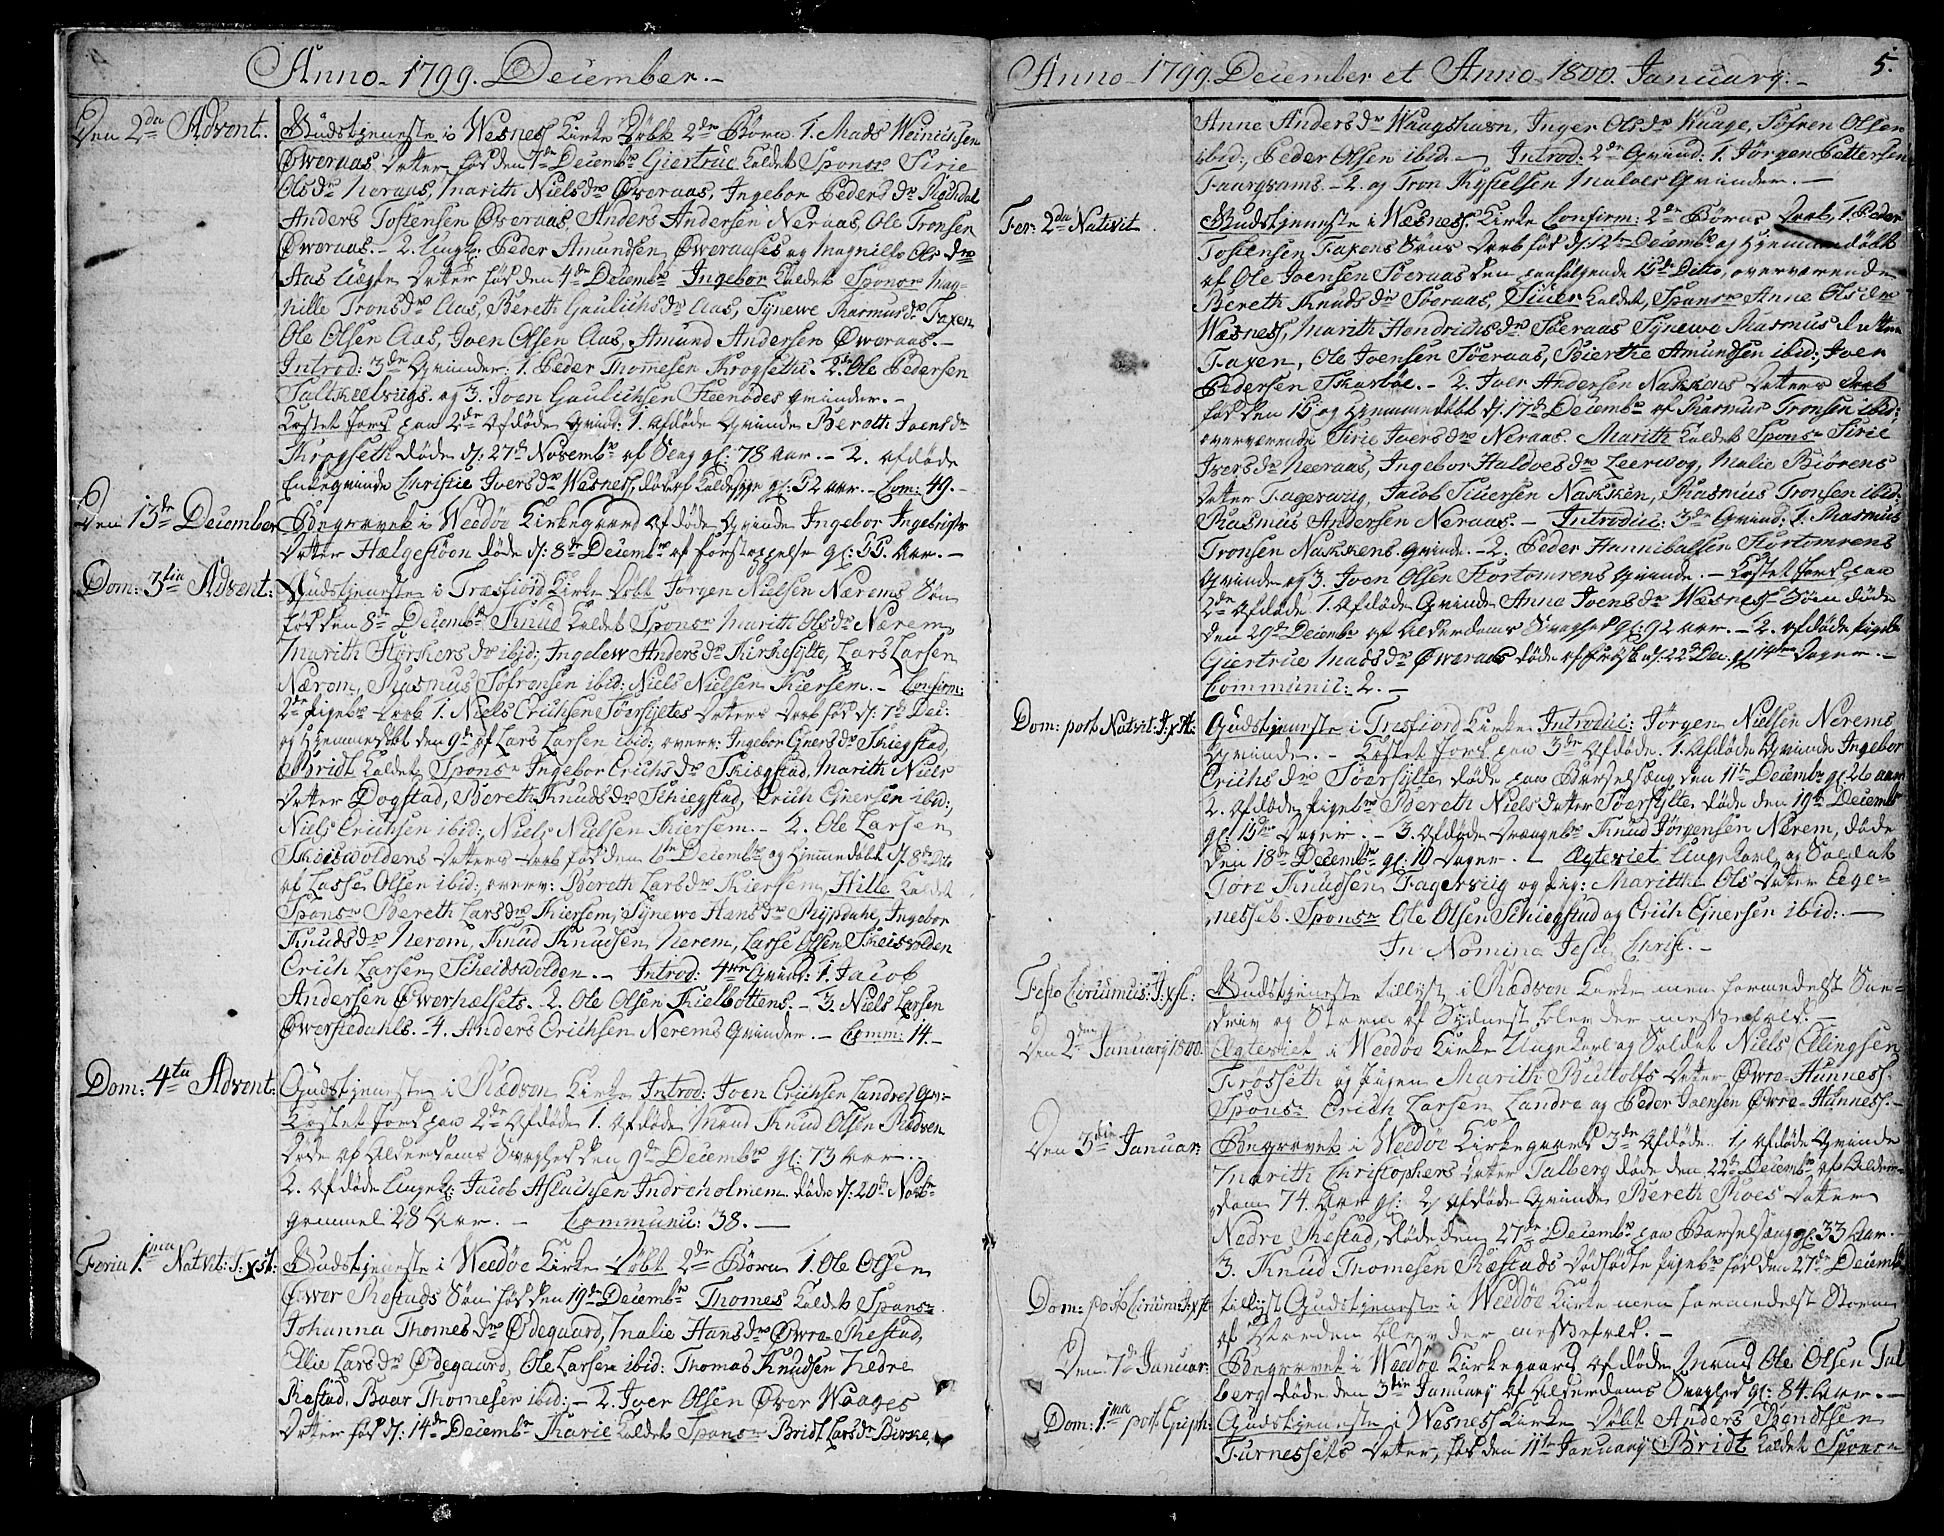 Anno 1799. December.
Den 2den Advent.
Gudstjeneste i Wesnes Kirke Døbt 2de Børn. 1. Mads Weinichsen
Øweraas Datter fød den 7de Decembr Giertrue kaldet Sponsr Sirie
Olsdr Neraas, Marith Nielsdr Øweraas, Ingebor Pedersdr
Anders Tostensen Øweraas, Anders Andersen Neraas, Ole Tronsen
Øweraas. 2. Ungk: Peder Amundsen Øweraases og Magnille Olsdr
Aas Datter fød den 4de Decembr Ingebor kaldet Sponsr Mag-
nille Tronsdr Aas, Bereth Gaulichsdr Aas, Synewe Rasmusdr Faxen
Ole Olsen Aas, Joen Olsen Aas, Amund Andersen Øweraas.-
Introd: 3de Qvinder: 1. Peder Thomesen Krogseths. 2. Ole Pedersen
og 3. Joen Gaulichsen Steenødes Qvinder.-
Kastet Jord paa 2de Afdøde Qvind: 1. Afdøde Qvinde Bereth Joensdr
Krogseth døde d: 27de Novembr gl: 78 Aar.- 2. Afdøde
Enkeqvinde Christie Iversdr Wesnes, døde gl: 52 Aar.- Com: 49.-
Den 13de December
Begravet i Weedøe Kirkegaard Afdøde Qvinde Ingebor Ingebrigts
Datter Hælgestøen døde d: 8de Decembr af Forstoppelse gl: 55 Aar.-
Dom: 3tia Advent:
Gudstjeneste i Træsfiord Kirke Døbt Jørgen Nielsen Nærems Søn
fød den 8de Decembr Knud kaldet Sponsr Marith Olsdr Nærem
Marith ibid:, Ingelew Andersdr Kirkesylte, Lars Larsen
Nærem, Rasmus Sofrensen ibid: Niels Nielsen Kiersem.- Confirm:
2de Pigebr Daab 1. Niels Erichsen Søersyltes Datters Daab fød d: 7de Dec:
og hjemmedøbt den 9de af Lars Larsen ibid:, overv: Ingebor Ejnersdr Skiegstad,
Bridt kaldet Sponsr Ingebor Erichsdr Skiægstad, Marith Niels
Datter Dogstad, Bereth Knudsdr Schiegstad, Erich Ejnersen ibid:,
Niels Erichsen ibid:, Niels Nielsen Kiersem.- 2. Ole Larsen
Skeiswoldens Datters Daab fød den 6te Decembr og hjemmedøbt d: 8de Dito
af Lasse Olsen ibid:, overv: Bereth Larsdr Kiersem, Hille kaldet
Sponsr Bereth Larsdr Kiersem, Synewe Hansdr Rypdahl, Ingebor
Knudsdr Nerem, Knud Knudsen Nerem, Larse Olsen Skeisvolden
Erich Larsen Scheidswolden.- Introd: 4re Qvind: 1. Jacob
Andersen Øwerhælsets. 2. Ole Olsen Kielbottens.- 3. Niels Larsen
Øwerstedahls.- 4. Anders Erichsen Nerems Qvinder.- Comm: 14.-
Dom: 4ta Advent:
Gudstjeneste i Rædven Kirke Introd: Joen Erichsen Landres Qv:-
Kastet Jord paa 2de Afdøde 1. Afdøde Mand Knud Olsen Rædven
Døde af Alderdoms Svaghed den 9de Decembr gl: 73 Aar.-
2. Afdøde Ungk: Jacob Aslachsen Indreholmem døde d: 20de Novbr
gammel 28 Aar.- Communic: 38.-
Feria 1ma Nativit: J: Xsti:
Gudstjeneste i Weedøe Kirke Døbt 2de Børn 1. Ole Olsen
Øver Restads Søn fød den 19de Decembr Thomes kaldet Sponsr
Johanna Thomesdr Ødegaard, Malie Hansdr Øvre-Restad,
Olie Larsdr Ødegaard, Ole Larsen ibid: Thomas Knudsen Nedre
Restad, Baar Thomesen ibid:- 2. Iver Olsen Øver Waages
Datter fød d: 14de Decembr Karie kaldet Sponsr Bridt Larsdr Birke,
Anno 1799. December et Anno 1800. January.- 5.
Anne Andersdr Waagshavn, Inger Olsdr Waage, Sofren Olsen
ibid:, Peder Olsen ibid.- Introd: 2de Qvind: 1. Jørgen Pettersen
2. og Tron Kyselsen Malves Qvinder.-
Fer: 2da Nativit
Gudstjeneste i Wæsness Kirke Confirm: 2de Børns Daab, 1. Peder
Tostensen Faxens Søns Daab fød d: 12te Decembr og hjemmedøbt
af Ole Joensen Søeraas den paafølgende 15de Ditto, overværende
Bereth Knudsdr Søeraas, Siver kaldet, Sponsr Anne Olsdr
Wæsness, Marith Hendrichsdr Søeraas Synewe Rasmus Datter
Faxen, Ole Joensen Søeraas, Bierthe Amundsen ibid:, Iver
Pedersen Skarbøe.- 2. Iver Andersen Nakkens Datters Daab
fød den 15 og hjemmedøbt d: 17de Decembr af Rasmus Tronsen ibid:
overværende Sirie Iversdr Neraas. Marith kaldet Sponsr Sirie
Iversdr Neeraas, Ingebor Haldvesdr Leerwog, Malie Biørens
Datter Fagerwiig, Jacob Siversen Nakken, Rasmus Tronsen ibid:
Rasmus Andersen Neraas.- Introduc: 3de Qvind: 1. Rasmus
Tronsen Nakkens Qvinde.- 2. Peder Hannibalsen Stortomrens
Qvinde og 3. Joen Olsen Stortomrens Qvinde.- Kastet Jord paa
2de Afdøde 1. Afdøde Qvinde Anne Joensdr Wæsness døde
den 29de Decembr af Alderdoms Svaghed gl: 92 Aar.- 2. Afdøde Pigebr
Giertrue Madsdr Øweraas døde d: 22de Dec: gl 14ten Dager.-
Communic: 2.-
Dom: post Nativit: J: Xsti:
Gudstjeneste i Tresfiord Kirke Introduc: Jørgen Nielsen Nerems
Qvinde.- Kastet Jord paa 3de Afdøde. 1. Afdøde Qvinde Ingebor
Erichsdr Søersylte døde paa Barselseng den 11te Decembr gl: 26 aar
2. Afdøde Pigebr Bereth Niels datter Søersylte døde den 19de Decembr
gl: Dager.- 3. Afdøde Drængebr Knud Jørgensen Nerem, døde
den 18de Decembr gl: 10 Dager.- Ægteviet Ungekarl og Soldat
Tore Knudsen Fagerviig og Pig: Marithe Ols Datter Eege-
nesset. Sponsr Ole Olsen Schiegstad og Erich Ejnersen ibid:.-
In Nomine Jesu Christ.-
Festo Circumcis: J: Xst:
Gudstjeneste tillyst i Rædven Kirke men formedelst Snee-
driv og Storm af blev der messefald.-
Den 2den January 1800.
Ægteviet i Weedøe Kirke Ungekarl og Soldat Niels Ellingsen
Frøsseth og Pigen Marith Buttolfs Datter Øvre-Hunness.
Sponsr Erich Larsen Landre og Peder Joensen Øvre-Hunness.-
Den 3die Januar:
Begravet i Weedøe Kirkegaard 3de Afdøde. 1, Afdøde Qvinde
Marith Christophers Datter Talberg døde den 22de Decembr af Alder-
dom 74. Aar gl: 2, Afdøde Qvinde Bereth Roes Datter
Nedre Restad, døde den 27de Decembr paa Barselseng gl: 33 Aar.-
3. Knud Thomesen Ræstads Dødfødte Pigebr fød den 27de Decembr
Dom: post Circum: J: Xst
tillyst Gudstjeneste i Weedøe Kirke men formedelst Storm
af Norden blev der messefald.-
Den 7de Januar:
Begravet i Weedøe Kirkegaard Afdøde Mand Ole Olsen Tal
berg døde den 3die January af Alderdoms Svaghed gl: 84 Aar.-
Dom: 1ma post Epiph:
Gudstjeneste i Wesness Kirke Døbt Anders Bendtsen
Furnessets Datter, fød den 11te January Bridt kaldet Sponsr